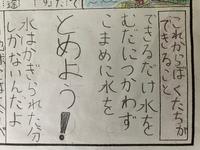 これからぼくたちが
できること
できるだけ水を
むだにつかわず
こまめに水を
とめよう！
水はかぎられた分
しかないんだよ